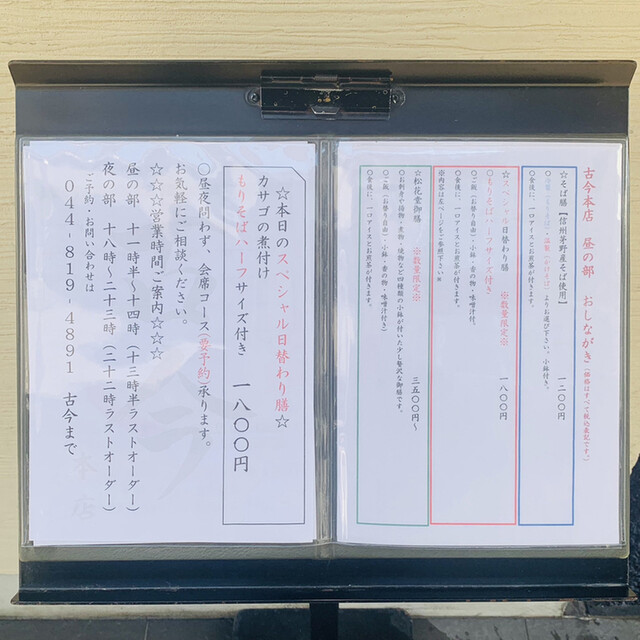 古今本店 昼の部 おしながき(価格はすべて税込表記です。)
☆そば膳【信州茅野産そば使用】 一二〇〇円
よりお選び下さい。小鉢付き。
○食後に、一口アイスとお煎茶が付きます。
☆スペシャル日替わり膳 ※数量限定※ 一八〇〇円
もりそばハーフサイズ付き
○ご飯(お替り自由)・小鉢・香の物・味噌汁付
○食後に、一口アイスとお煎茶が付きます。
※内容は左ページをご参照下さい※
☆松花堂御膳 ※数量限定※ 三五〇〇円~
○お刺身や揚物・煮物・焼物など四種類の小鉢が付いた少し贅沢な御膳です。
○ご飯(お替り自由)・小鉢・香の物・味噌汁付き
○食後に、一口アイスとお煎茶が付きます。
☆本日のスペシャル日替わり膳☆
カサゴの煮付け
もりそばハーフサイズ付き 一八〇〇円
○昼夜問わず、会席コース(要予約)承ります。
お気軽にご相談ください。
☆☆☆営業時間ご案内☆☆☆
昼の部 十一時半~十四時(十三時半ラストオーダー)
夜の部 十八時~二十三時(二十二時ラストオーダー)
ご予約・お問い合わせは
044-819-4891 古今まで
本店